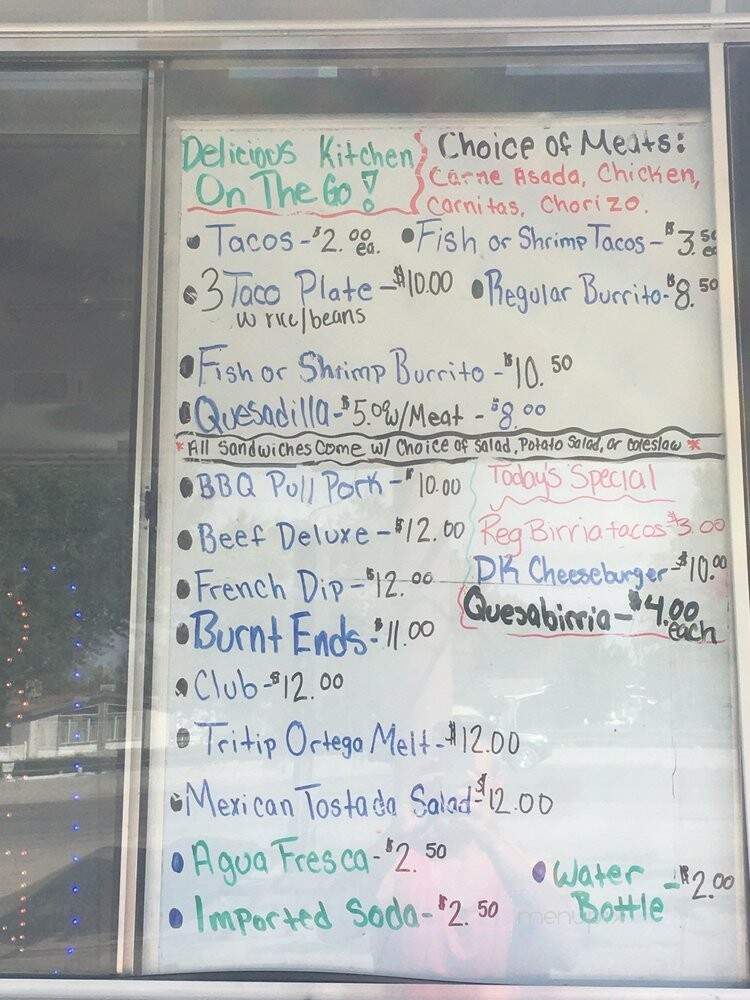 Delicious Kitchen
On The Go!
Choice of Meats:
Carne Asada, Chicken,
Carnitas, Chorizo.
• Tacos - $2.00 ea.
• Fish or Shrimp Tacos - $3.50
• 3 Taco Plate - $10.00
w rice/beans
• Regular Burrito - $8.50
• Fish or Shrimp Burrito - $10.50
• Quesadilla - $5.00 w/Meat - $8.00
* All Sandwiches Come w/ Choice of Salad, Potato Salad, or coleslaw *
• BBQ Pull Pork - $10.00
• Beef Deluxe - $12.00
• French Dip - $12.00
• Burnt Ends - $11.00
• Club - $12.00
• Tritip Ortega Melt - $12.00
• Mexican Tostada Salad - $12.00
• Agua Fresca - $2.50
• Imported Soda - $2.50
Today's Special
Reg Birria tacos $3.00
DK Cheeseburger - $10.00
Quesabirria - $4.00
each
• Water - $2.00
Bottle